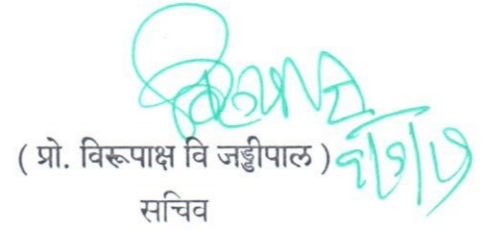 ( प्रो. विरूपाक्ष वि जड्डीपाल )
सचिव